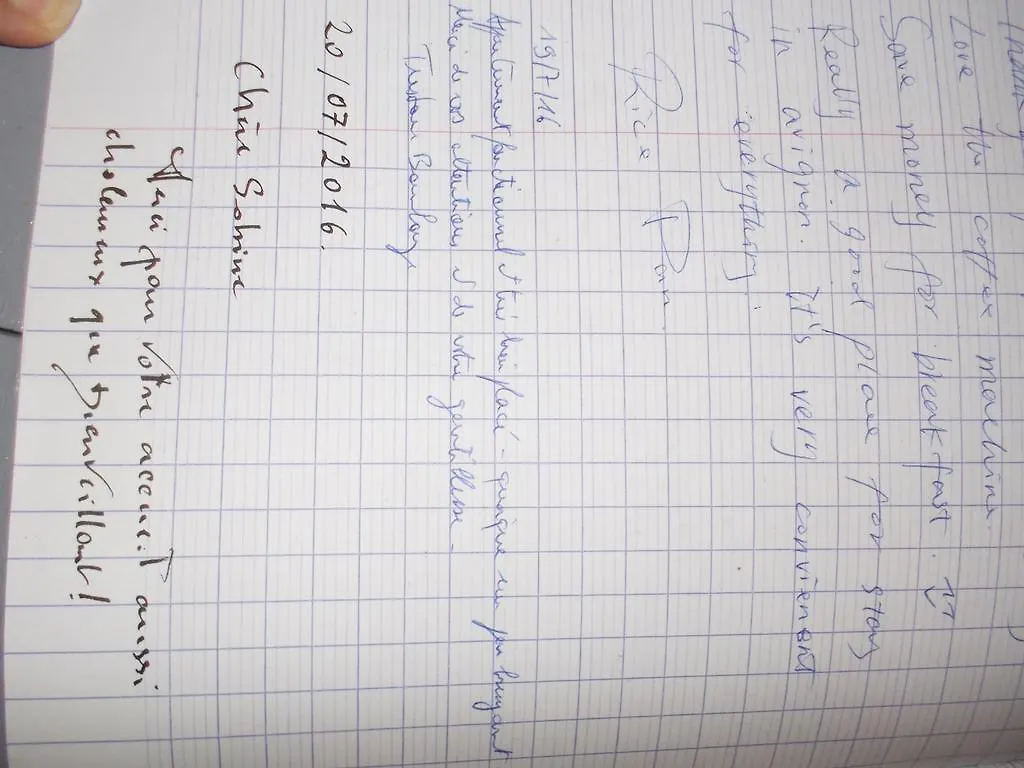 Love the coffee machine.
Save money for breakfast.
Really a good place for stay
in avignon. it's very convienent
for everything.
19/7/16
Appartement fonctionnel très bien placé - quoique un peu bruyant
Merci de vos attentions et de votre gentillesse -
20/07/2016.
Chère Sabine
Merci pour votre accueil aussi
chaleureux que bienveillant!